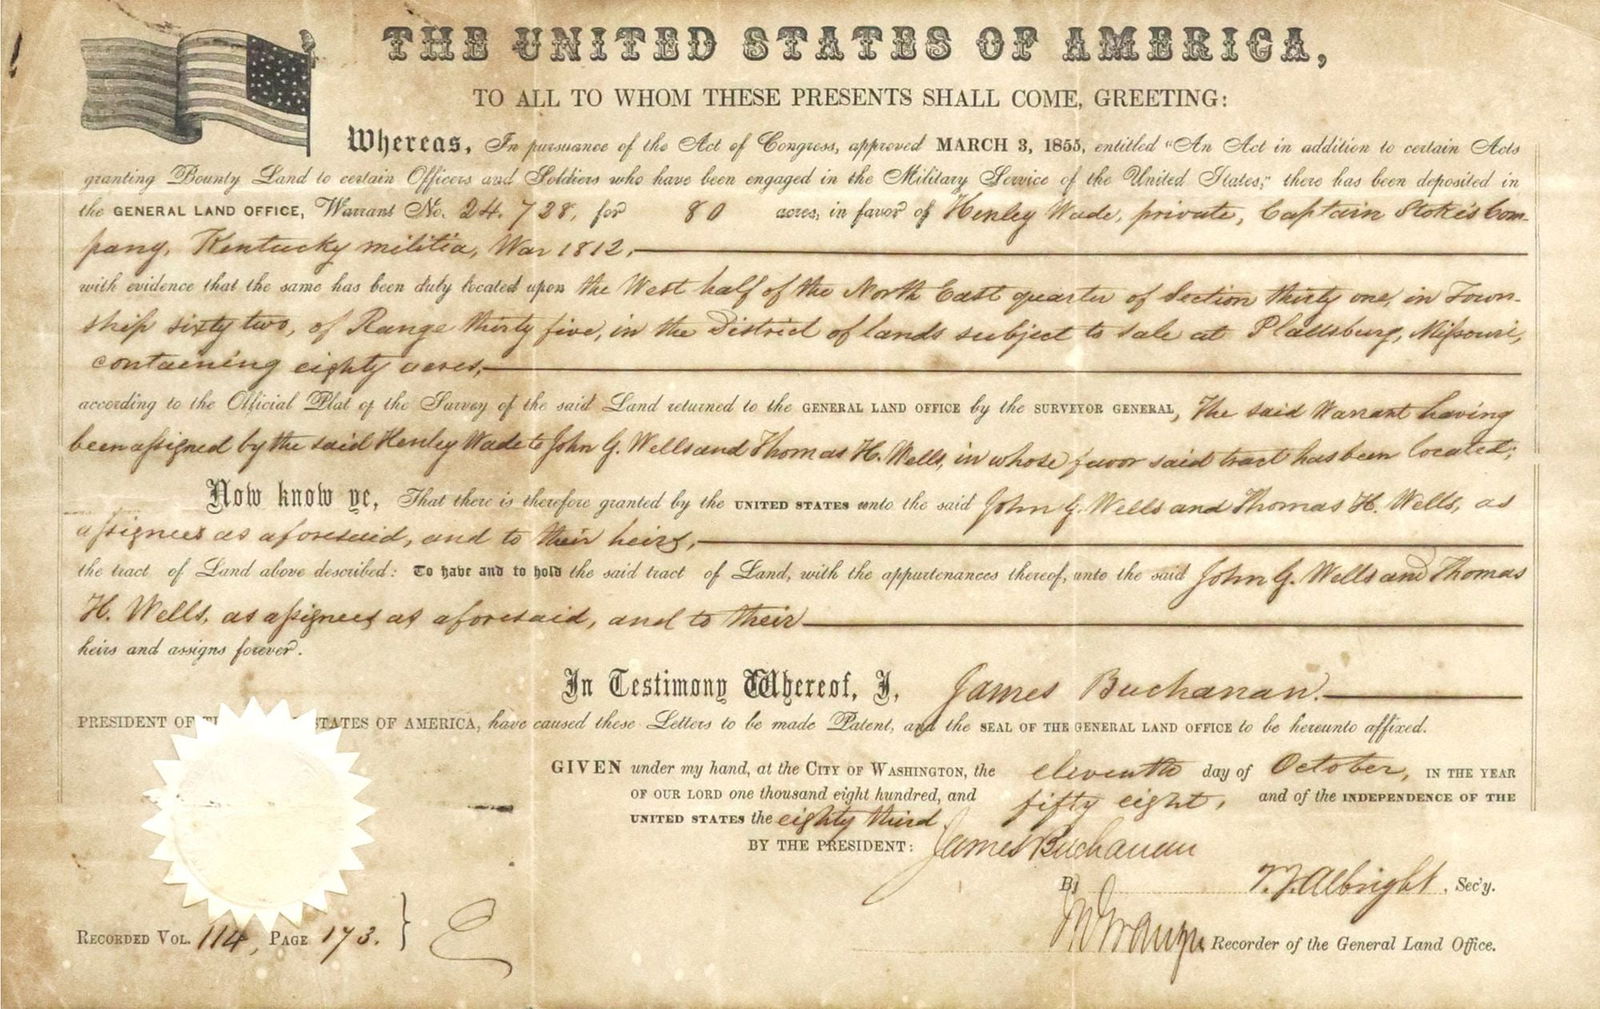 THE UNITED STATES OF AMERICA,
TO ALL TO WHOM THESE PRESENTS SHALL COME, GREETING:
Whereas, In pursuance of the Act of Congress, approved MARCH 3, 1855, entitled "An Act in addition to certain Acts
granting Bounty Land to certain Officers and Soldiers who have been engaged in the Military Service of the United States," there has been deposited in
the GENERAL LAND OFFICE, Warrant No. 24.728, for 80 acres, in favor of Henley Wade, private, Captain Stoke's Com-
pany, Kentucky militia, War 1812,
with evidence that the same has been duly located upon the West half of the North East quarter of Section thirty one, in Town-
ship sixty two, of Range thirty five, in the District of lands subject to sale at Plattsburg, Missouri,
containing eighty acres,
according to the Official Plat of the Survey of the said Land returned to the GENERAL LAND OFFICE by the SURVEYOR GENERAL, The said Warrant having
been assigned by the said Henley Wade to John G. Wells and Thomas H. Wells, in whose favor said tract has been located;
Now know ye, That there is therefore granted by the UNITED STATES unto the said John G. Wells and Thomas H. Wells, as
assignees as aforesaid, and to their heirs,
the tract of Land above described: To have and to hold the said tract of Land, with the appurtenances thereof, unto the said John G. Wells and Thomas
H. Wells, as assignees as aforesaid, and to their
heirs and assigns forever.
In Testimony Whereof, I, James Buchanan.
PRESIDENT OF STATES OF AMERICA, have caused these Letters to be made Patent, and the SEAL OF THE GENERAL LAND OFFICE to be hereunto affixed.
GIVEN under my hand, at the CITY OF WASHINGTON, the eleventh day of October, IN THE YEAR
OF OUR LORD one thousand eight hundred, and fifty eight, and of the INDEPENDENCE OF THE
UNITED STATES the eighty third
BY THE PRESIDENT: James Buchanan
By T. J. Albright, Sec'y.
RECORDED VOL. 114, PAGE 173.
Recorder of the General Land Office.